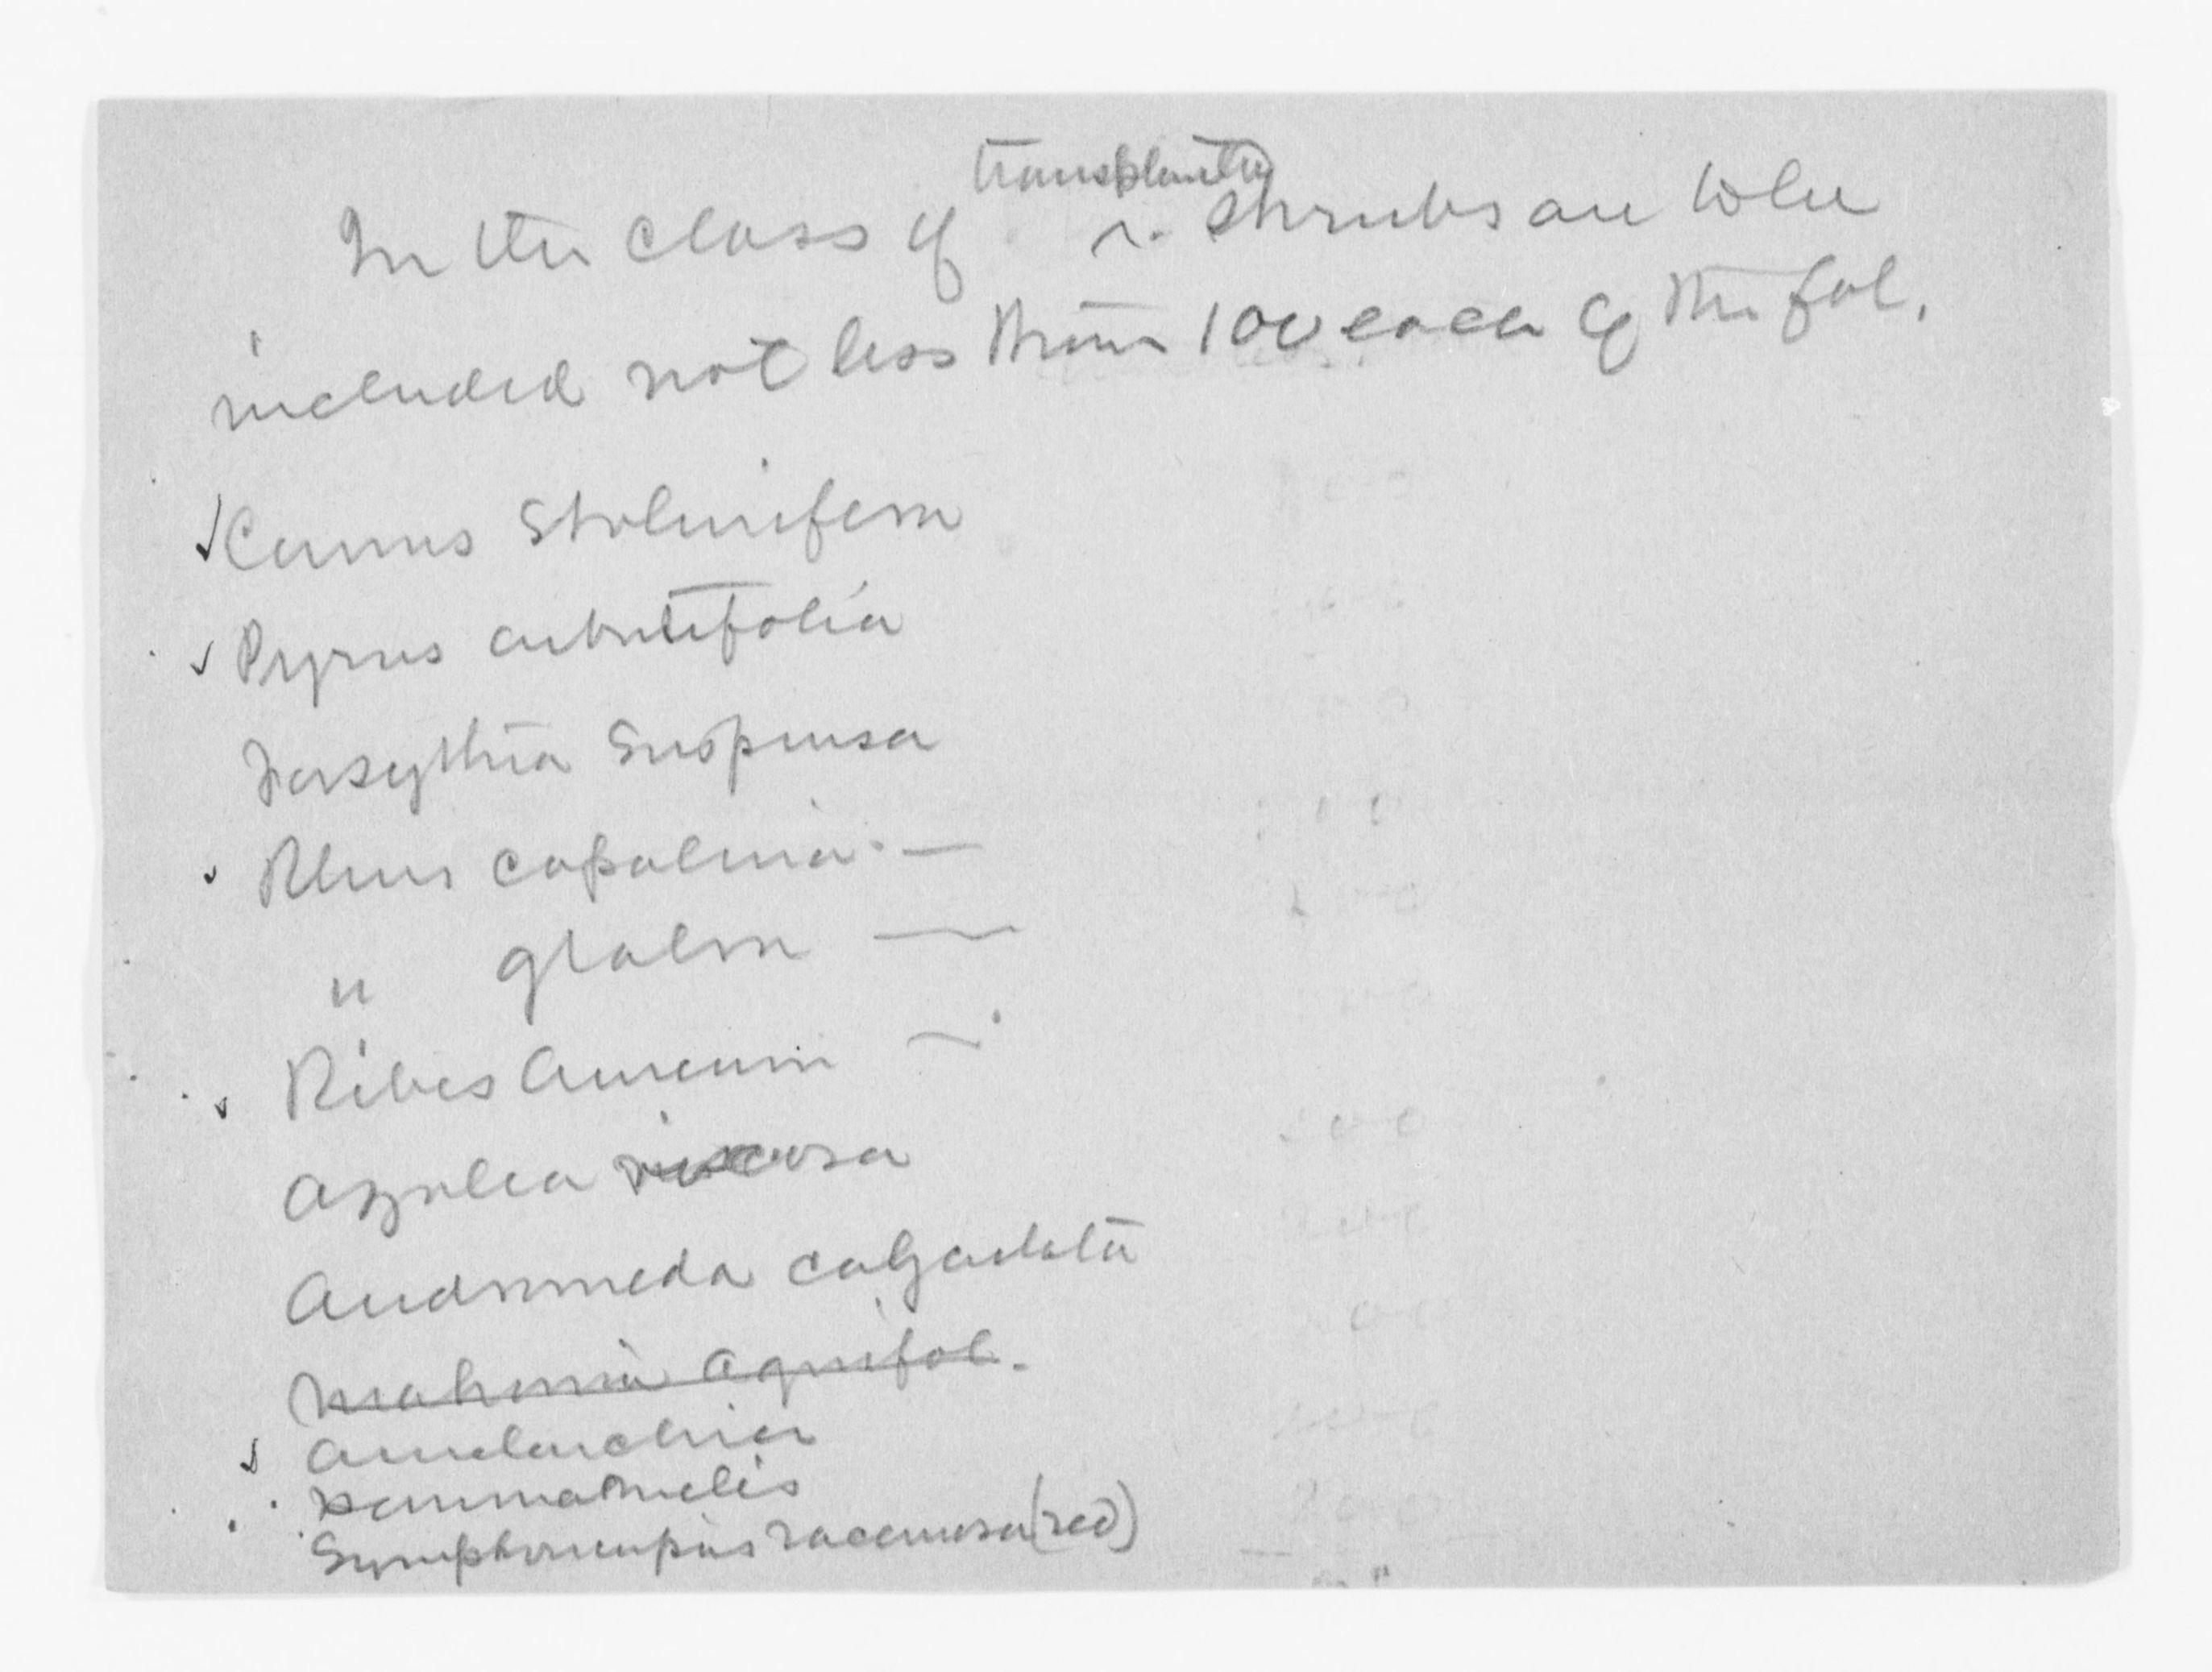 In the class of transplanted shrubs are to be
included not less than 100 each of the fol.
Cornus Stolonifera
Pyrus arbutifolia
Forsythia Suspensa
Rhus copalina —
" glabra —
Ribes Aureum —
Azalea viscosa
Andromeda calyculata
Mahonia Aquifol.
Amelanchier
Hammamelis
Symphoricarpus racemosa (red)